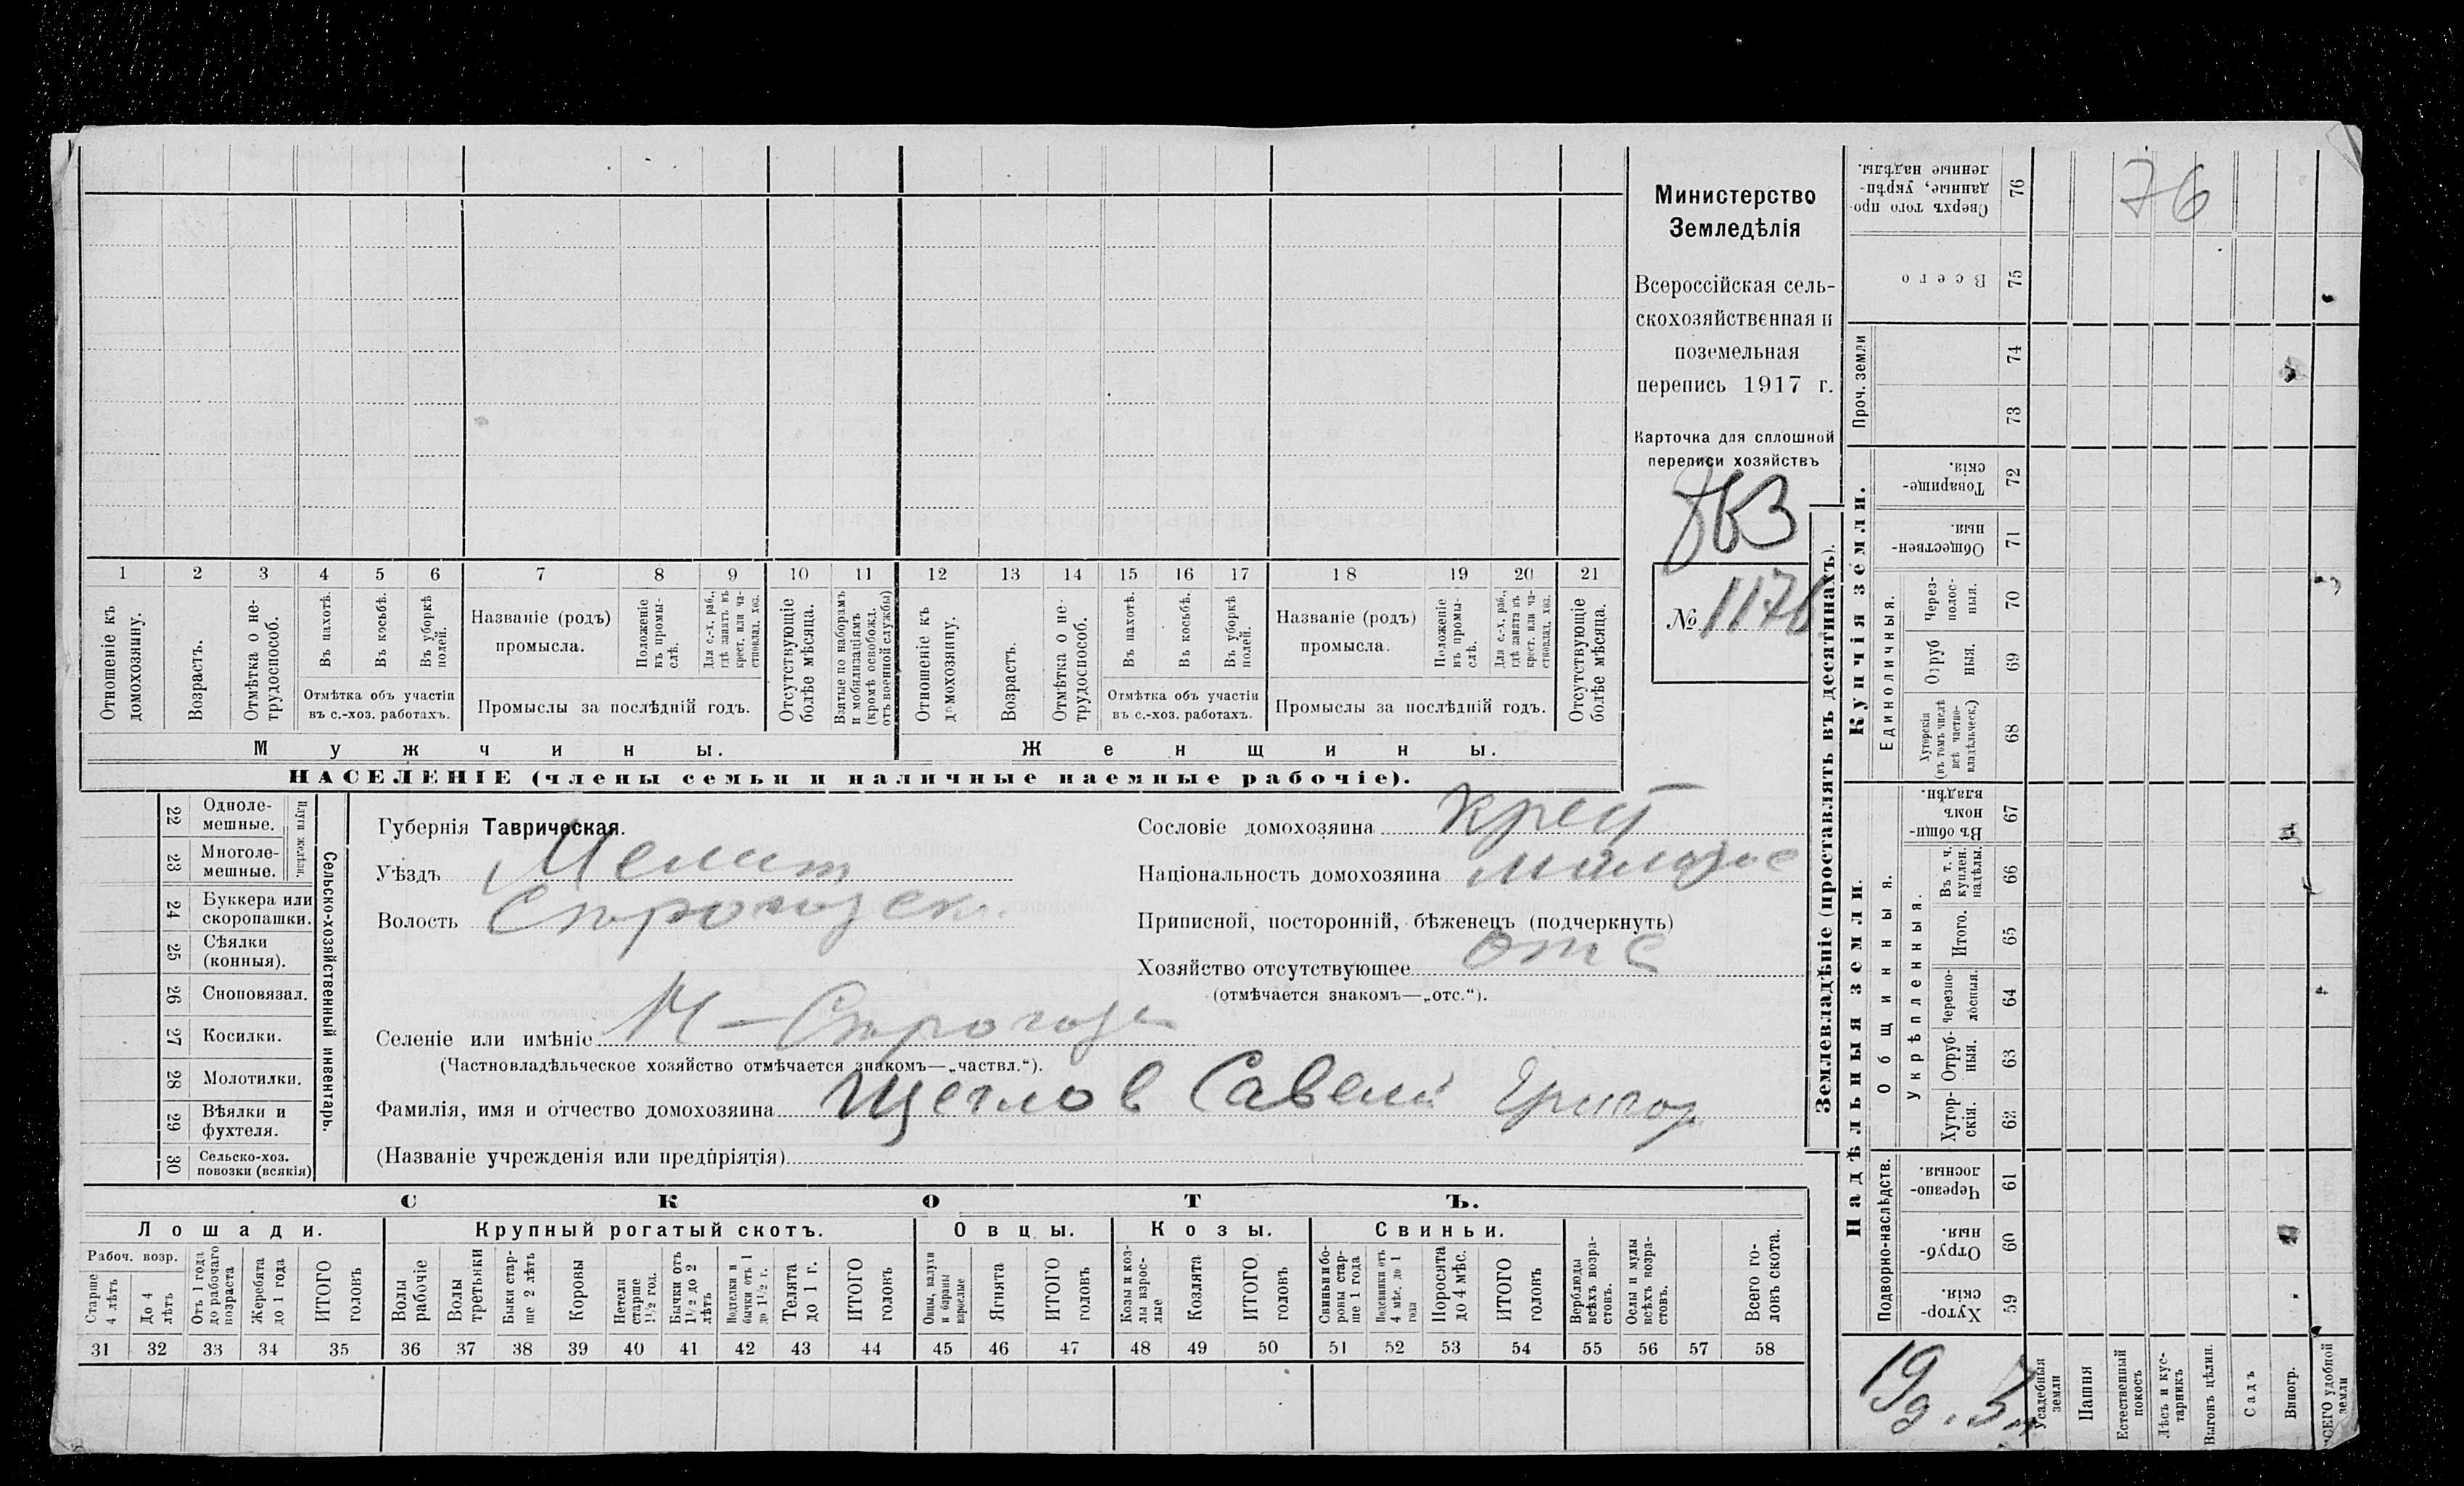 Министерство
Земледѣлія
Всероссійская сель-
скохозяйственная и
поземельная
перепись 1917 г.
Карточка для сплошной
переписи хозяйствъ
№ 1176
1 2 3 4 5 6 7 8 9 10 11 12 13 14 15 16 17 18 19 20 21
Отношеніе къ домохозяину.
Возрастъ.
Отмѣтка о не-трудоспособ.
Въ пахотѣ.
Въ косьбѣ.
Въ уборкѣ полей.
Отмѣтка объ участіи
въ с.-хоз. работахъ.
Названіе (родъ)
промысла.
Положеніе въ промы-слѣ.
Для с.-х. раб., гдѣ занятъ въ крест. или ча-стновлад. хоз.
Промыслы за послѣдній годъ.
Отсутствующіе болѣе мѣсяца.
Взятые по наборамъ и мобилизаціямъ (кромѣ освобожд. отъ военной службы)
Отношеніе къ домохозяину.
Возрастъ.
Отмѣтка о не-трудоспособ.
Въ пахотѣ.
Въ косьбѣ.
Въ уборкѣ полей.
Отмѣтка объ участіи
въ с.-хоз. работахъ.
Названіе (родъ)
промысла.
Положеніе въ промы-слѣ.
Для с.-х. раб., гдѣ занята въ крест. или ча-стновлад. хоз.
Промыслы за послѣдній годъ.
Отсутствующіе болѣе мѣсяца.
Мужчины.
Женщины.
НАСЕЛЕНІЕ (члены семьи и наличные наемные рабочіе).
22 Одноле-мешные.
23 Многоле-мешные.
Плуги желѣзн.
24 Буккера или скоропашки.
25 Сѣялки (конныя).
26 Сноповязал.
27 Косилки.
28 Молотилки.
29 Вѣялки и фухтеля.
30 Сельско-хоз. повозки (всякія)
Сельско-хозяйственный инвентарь.
Губернія Таврическая.
Уѣздъ Мелит
Волость
Селеніе или имѣніе
(Частновладѣльческое хозяйство отмѣчается знакомъ—„частвл.“).
Фамилія, имя и отчество домохозяина Щеглов Савелий Григор
(Названіе учрежденія или предпріятія)
Сословіе домохозяина крест
Національность домохозяина
Приписной, посторонній, бѣженецъ (подчеркнуть)
Хозяйство отсутствующее отс
(отмѣчается знакомъ—„отс.“).
СКОТЪ.
Лошади. Крупный рогатый скотъ. Овцы. Козы. Свиньи.
Рабоч. возр.
Старше 4 лѣтъ
До 4 лѣтъ
Отъ 1 года до рабочаго возраста
Жеребята до 1 года
ИТОГО головъ
Волы рабочіе
Волы третьяки
Быки стар-ше 2 лѣтъ
Коровы
Нетели старше 1½ год.
Бычки отъ 1½ до 2 лѣтъ
Подтелки и бычки отъ 1 до 1½ г.
Телята до 1 г.
ИТОГО головъ
Овцы, валухи и бараны взрослые
Ягнята
ИТОГО головъ
Козы и коз-лы взрос-лые
Козлята
ИТОГО головъ
Свиньи и бо-ровы стар-ше 1 года
Подсвинки отъ 4 мѣс. до 1 года
Поросята до 4 мѣс.
ИТОГО головъ
Верблюды всѣхъ возра-стовъ.
Ослы и мулы всѣхъ возра-стовъ.
Всего го-ловъ скота.
31 32 33 34 35 36 37 38 39 40 41 42 43 44 45 46 47 48 49 50 51 52 53 54 55 56 57 58
Землевладѣніе (проставлять въ десятинахъ).
Купчія земли.
Надѣльныя земли.
Проч. земли
Единоличныя.
Общинныя.
Укрѣпленныя.
Подворно-наслѣдств.
Сверхъ того про-данные, укрѣп-ленные надѣлы. 76
Всего 75
74
73
Товарище-скія. 72
Обществен-ныя. 71
Через-полос-ныя. 70
Отруб ныя. 69
Хуторскія (въ томъ числѣ всѣ частно-владѣльческ.) 68
Въ общин-номъ владѣн. 67
Въ т. ч. куплен. надѣлы. 66
Итого. 65
Черезпо-лосныя. 64
Отруб-ныя. 63
Хутор-скія. 62
Черезпо-лосныя. 61
Отруб-ныя. 60
Хутор-скія. 59
76
Усадебныя земли
Пашня
Естественный покосъ
Лѣсъ и кус-тарникъ
Выгонъ цѣлин.
Садъ
Виногр.
ВСЕГО удобной земли